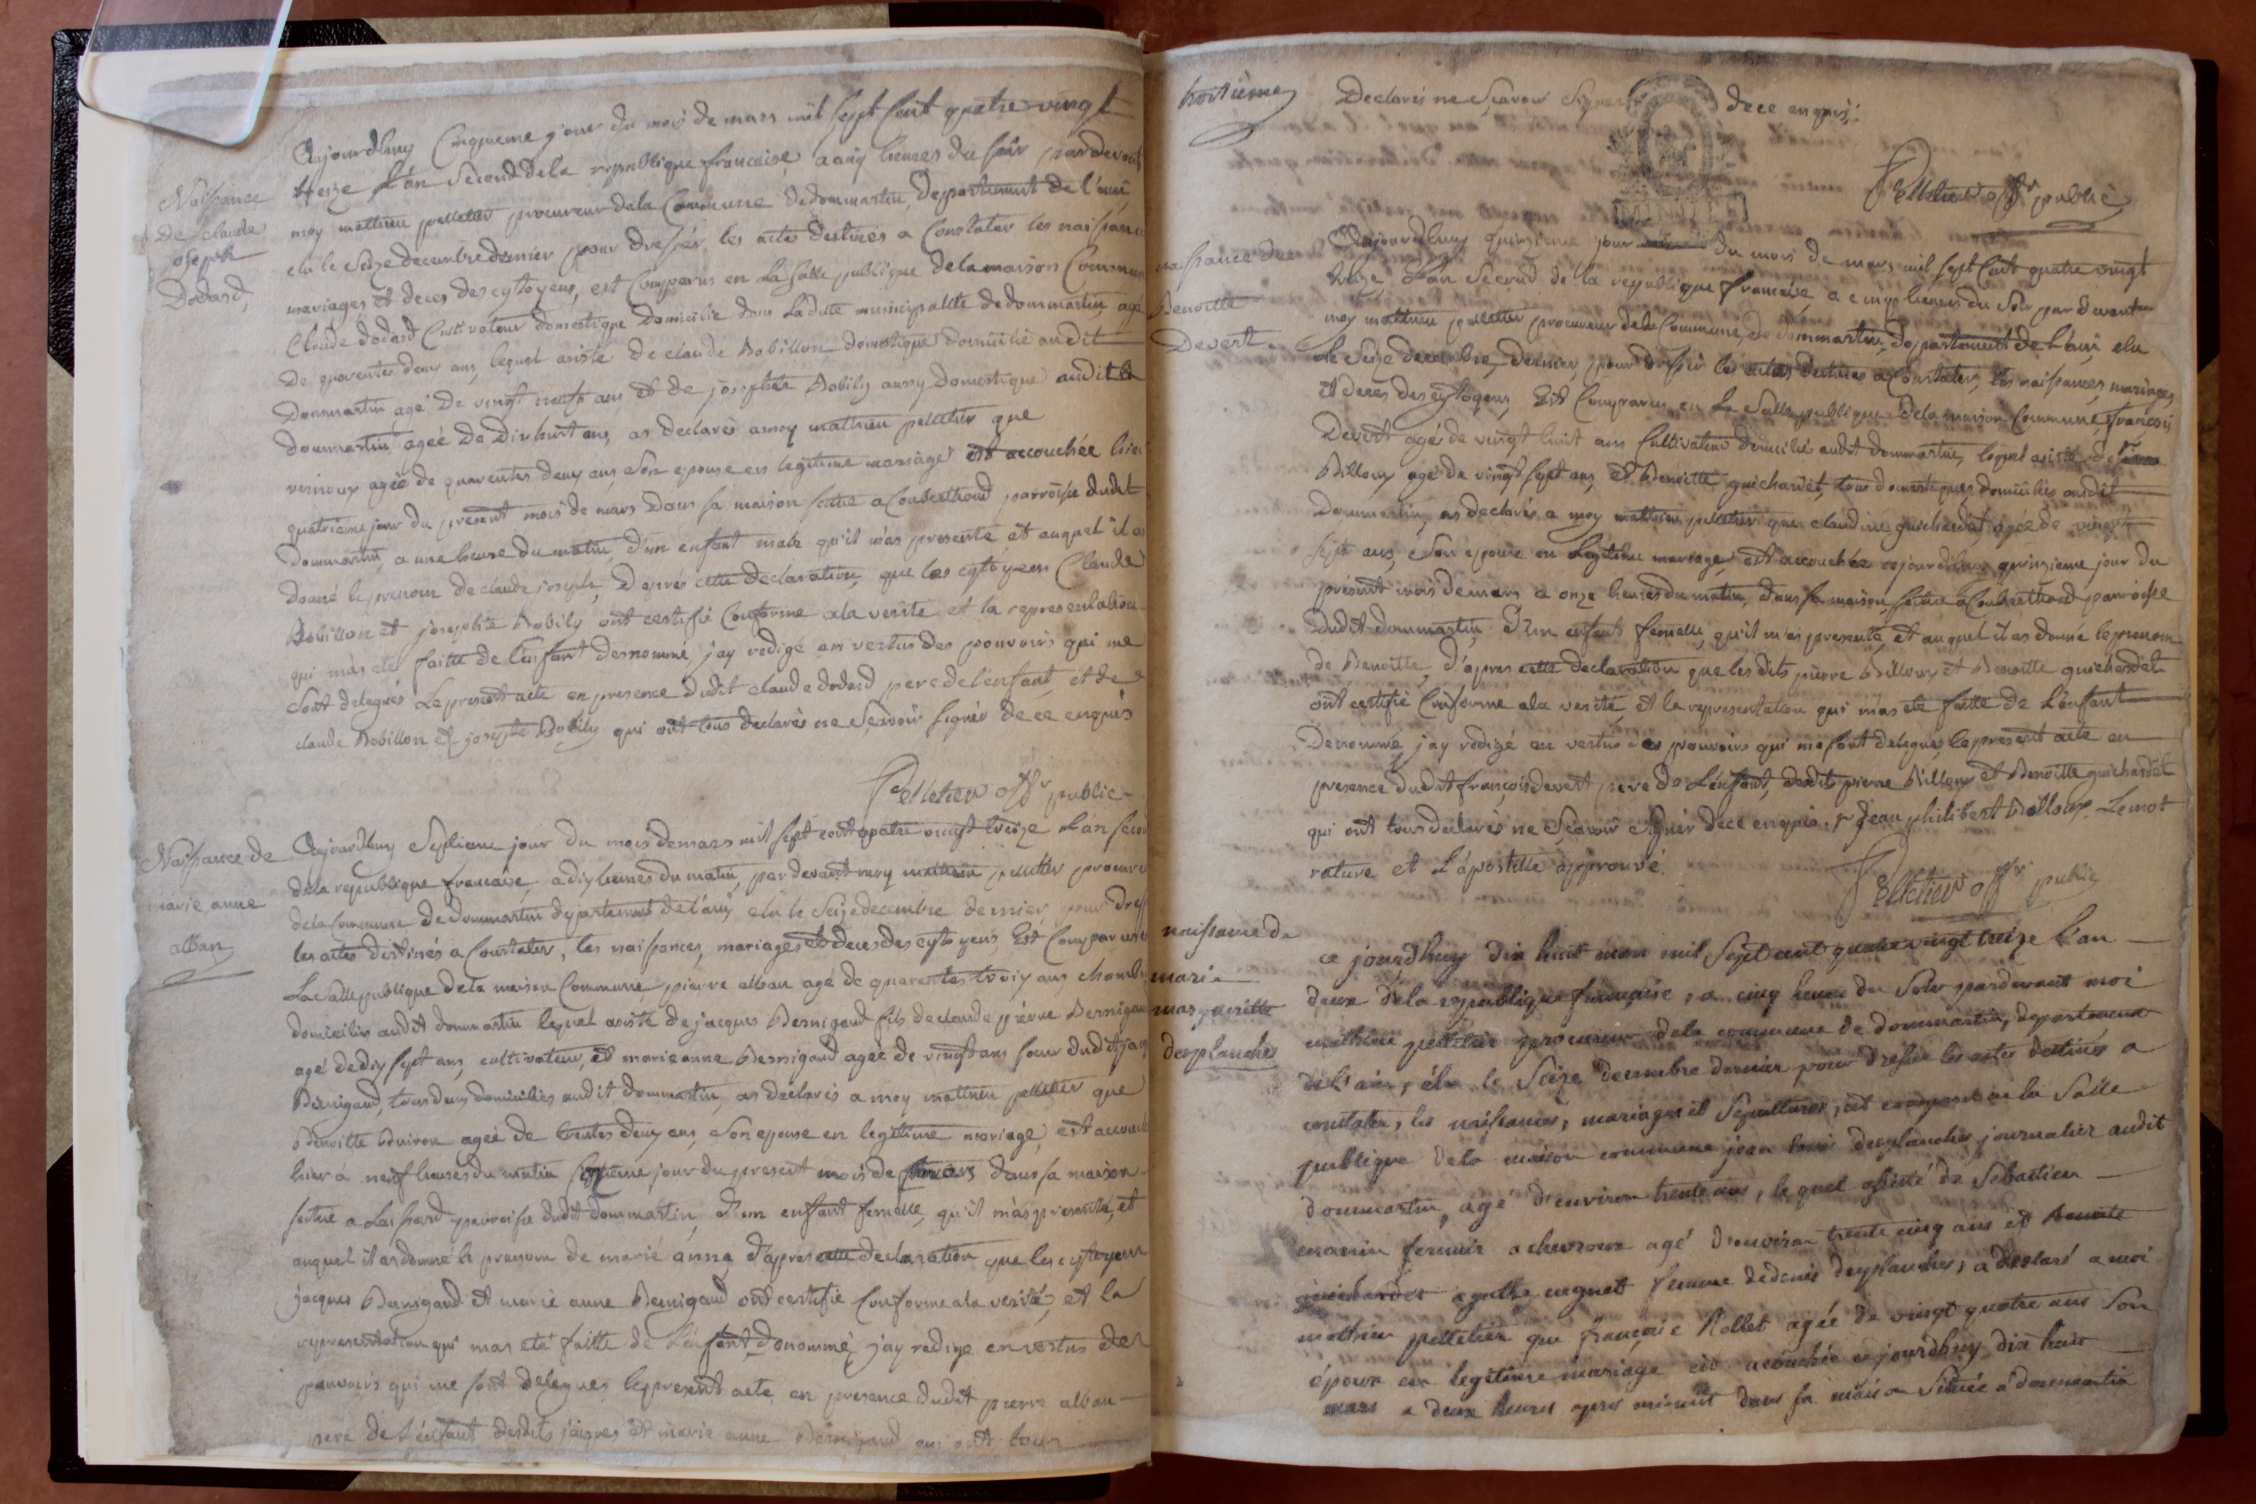 Naissance
de claude
joseph
Dodard
Aujourdhuy Cinquieme jour du mois de mars mil sept Cent quatre vingt
treize L'an Second de la republique francaise, a cinq heures du soir par devant
moy mathieu pelletier procureur de la Commune de dommartin Departement de l'ain
elu le Seize decembre dernier pour dresser les actes destinés a Constater les naissances
mariages et deces des cytoyens, est Comparus en La Salle publique de la maison Commune
Claude dodard Cultivateur domestique Domicilié dans La dite municipalité de dommartin agé
De quarentes deux ans, lequel assisté de claude Robillon domestique domicilié audit
Dommartin agé de vingt neuf ans et de josephte Robily aussy Domestique audit
dommartin ageé de Dix huit ans, as declarés a moy mathieu pelletier que
ageé de quarentes deux ans Son epouse en legitime mariage est accouchée hier
quatrieme jour du present mois de mars Dans sa maison scitue a Couberthoud parroisse dudit
dommartin, a une heure du matin, d'un enfant male qu'il m'as presenté et auquel il as
donné le prenom de claude joseph, D'apres cette declaration, que les cytoyens Claude
Robillon et josephte Robily ont certifié Conforme a la verité et la representation
qui m'as eté faitte de l'enfant denommé, j'ay redigé en vertus des pouvoirs qui me
sont delegués Le present acte en presence dudit claude dodard pere de l'enfant et de
claude Robillon et josephte Robily qui ont tous declarés ne Sçavoir signer de ce enquis
Pelletier offr public
Naissance de
marie anne
alban
Aujourdhuy Septieme jour du mois de mars mil sept cent quatre vingt treize L'an Second
de la republique francaise, a dix heures du matin, par devant moy mathieu pelletier procureur
de la Commune de dommartin departement de l'ain, elu le Seize decembre dernier pour dresser
les actes destinés a Constater, les naissances, mariages et deces des cytoyens Est Comparus en
La Salle publique de la maison Commune pierre alban agé de quarentes trois ans
domicilié audit dommartin lequel assisté de jacques Bernigaud fils de claude pierre Bernigaud
agé de dix sept ans, cultivateur, et marie anne Bernigaud ageé de vingt ans sœur dudit jacques
Bernigaud, tous deux domiciliés audit dommartin, as declarés a moy mathieu pelletier que
Benoitte ageé de trentes deux ans, Son epouse en legitime mariage, est accouchée
hier a neuf heures du matin jour du present mois de mars dans sa maison
scitue a parroisse dudit dommartin, d'un enfant femelle, qu'il m'as presenté, et
auquel il as donné le prenom de marie anne, d'apres cette declaration que les cytoyens
jacques Bernigaud et marie anne Bernigaud ont certifié Conforme a la verité, et la
representation qui m'as eté faitte de l'enfant denommé, j'ay redigé en vertus des
pouvoirs qui me sont delegués le present acte en presence dudit pierre alban
pere de l'enfant desdits jacques et marie anne Bernigaud qui ont tous
Declarés ne Sçavoir Signer de ce enquis
Pelletier offr public
naissance de
Benoitte
Devert
Aujourdhuy quinzieme jour du mois de mars mil sept Cent quatre vingt
treize L'an Second de la republique francaise a cinq heures du Soir par devant
moy mathieu pelletier procureur de la Commune, de dommartin, departement de L'ain, elu
le Seize decembre, dernier, pour dresser les actes destinés a Constater, les naissances, mariages,
et deces des cytoyens, Est Comparus en La Salle publique de la maison Commune francois
Devert agé de vingt huit ans Cultivateur domicilié audit dommartin, lequel assisté de pierre
Billoux agé de vingt sept ans, et Benoitte guichardet, tous domestiques domiciliés audit
Dommartin, as declarés a moy mathieu pelletier que claudine guichardet ageé de vingt
sept ans, Son epouse en Legitime mariage, est accouchée aujourdhuy quinzieme jour du
present mois de mars a onze heures du matin, dans sa maison, scitue a Couberthoud parroisse
dudit dommartin, d'un enfant femelle, qu'il m'as presenté, et auquel il as donné le prenom
de Benoitte, d'apres cette declaration que les dits pierre Billoux et Benoitte guichardet
ont certifié Conforme a la verité, et la representation qui m'as eté faitte de L'enfant
Denommé, j'ay redigé en vertus des pouvoirs qui me sont delegués, le present acte en
presence dudit francois devert pere de L'enfant, desdits pierre Billoux et Benoitte guichardet
qui ont tous declarés ne Sçavoir signer de ce enquis. jean philibert Billoux. Le mot
rature et L'apostille approuvé.
Pelletier offr public
naissance de
marie
margueritte
desplanches
ce jourdhuy dix huit mars mil Sept cent quatre vingt treize l'an
deux de la republique francaise, a cinq heures du Soir pardevant moi
mathieu pelletier procureur de la commune de dommartin, departement
de l'ain, élu le Seize decembre dernier pour dresser les actes destinés a
constater, les naissances, mariages et Sepultures, est comparu en la Salle
publique de la maison commune jean louis desplanches journalier audit
dommartin, agé d'environ trente ans, lequel assisté de Sebastien
fermier a chevroux agé d'environ trente cinq ans et Benoite
guichardet agathe femme de denis desplanches, a declaré a moi
mathieu pelletier que francoise Rollet agée de vingt quatre ans Son
épouse en legitime mariage est acouchée cejourdhuy dix huit
mars a deux heures apres minuit dans sa maison Située a dommartin